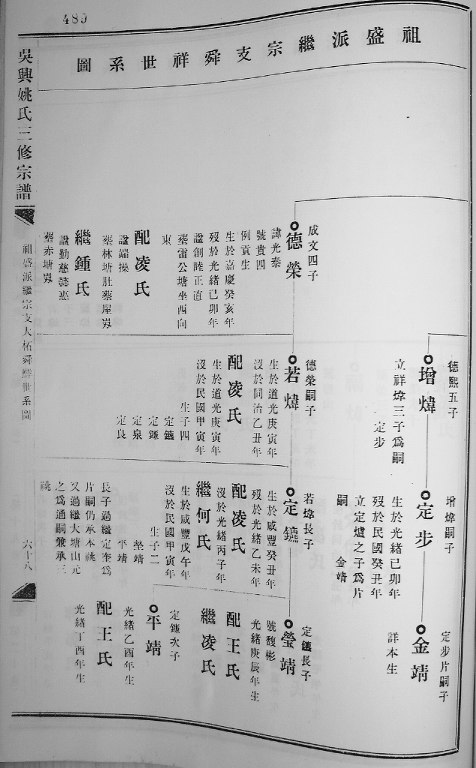 480
祖盛派繼宗支舜祥世系圖
吳興姚氏三修宗譜
祖盛派繼宗支大柘舜祥世系圖
六十八
德熙五子
增煒
立祥煒三子爲嗣
定步
增煒嗣子
定步
生於光緒己卯年
歿於民國癸丑年
立定爐之子爲片
嗣
金靖
定步片嗣子
金靖
詳本生
成文四子
德榮
諱光泰
號貴四
例貢生
生於嘉慶癸亥年
歿於光緒己卯年
諡創陸正直
葬雷公塘坐西向
東
配凌氏
諡端操
葬林塘壯葬屋㟁
繼鍾氏
諡勤慈
葬赤塘㟁
德榮嗣子
若煒
生於道光庚寅年
沒於同治乙丑年
配凌氏
生於道光庚寅年
沒於民國甲寅年
生子四
定鑣
定鎌
定泉
定良
若煒長子
定鑣
生於咸豐癸丑年
歿於光緒乙未年
配凌氏
沒於光緒丙子年
繼何氏
生於咸豐戊午年
沒於民國甲寅年
生子二
瑩靖
平靖
長子過繼定奎爲
片嗣仍承本祧
又過繼大塘山元
之爲通嗣兼承三
祧
定鑣長子
瑩靖
號馥彬
光緒庚辰年生
配王氏
繼凌氏
定鑣次子
平靖
光緒乙酉年生
配王氏
光緒丁酉年生